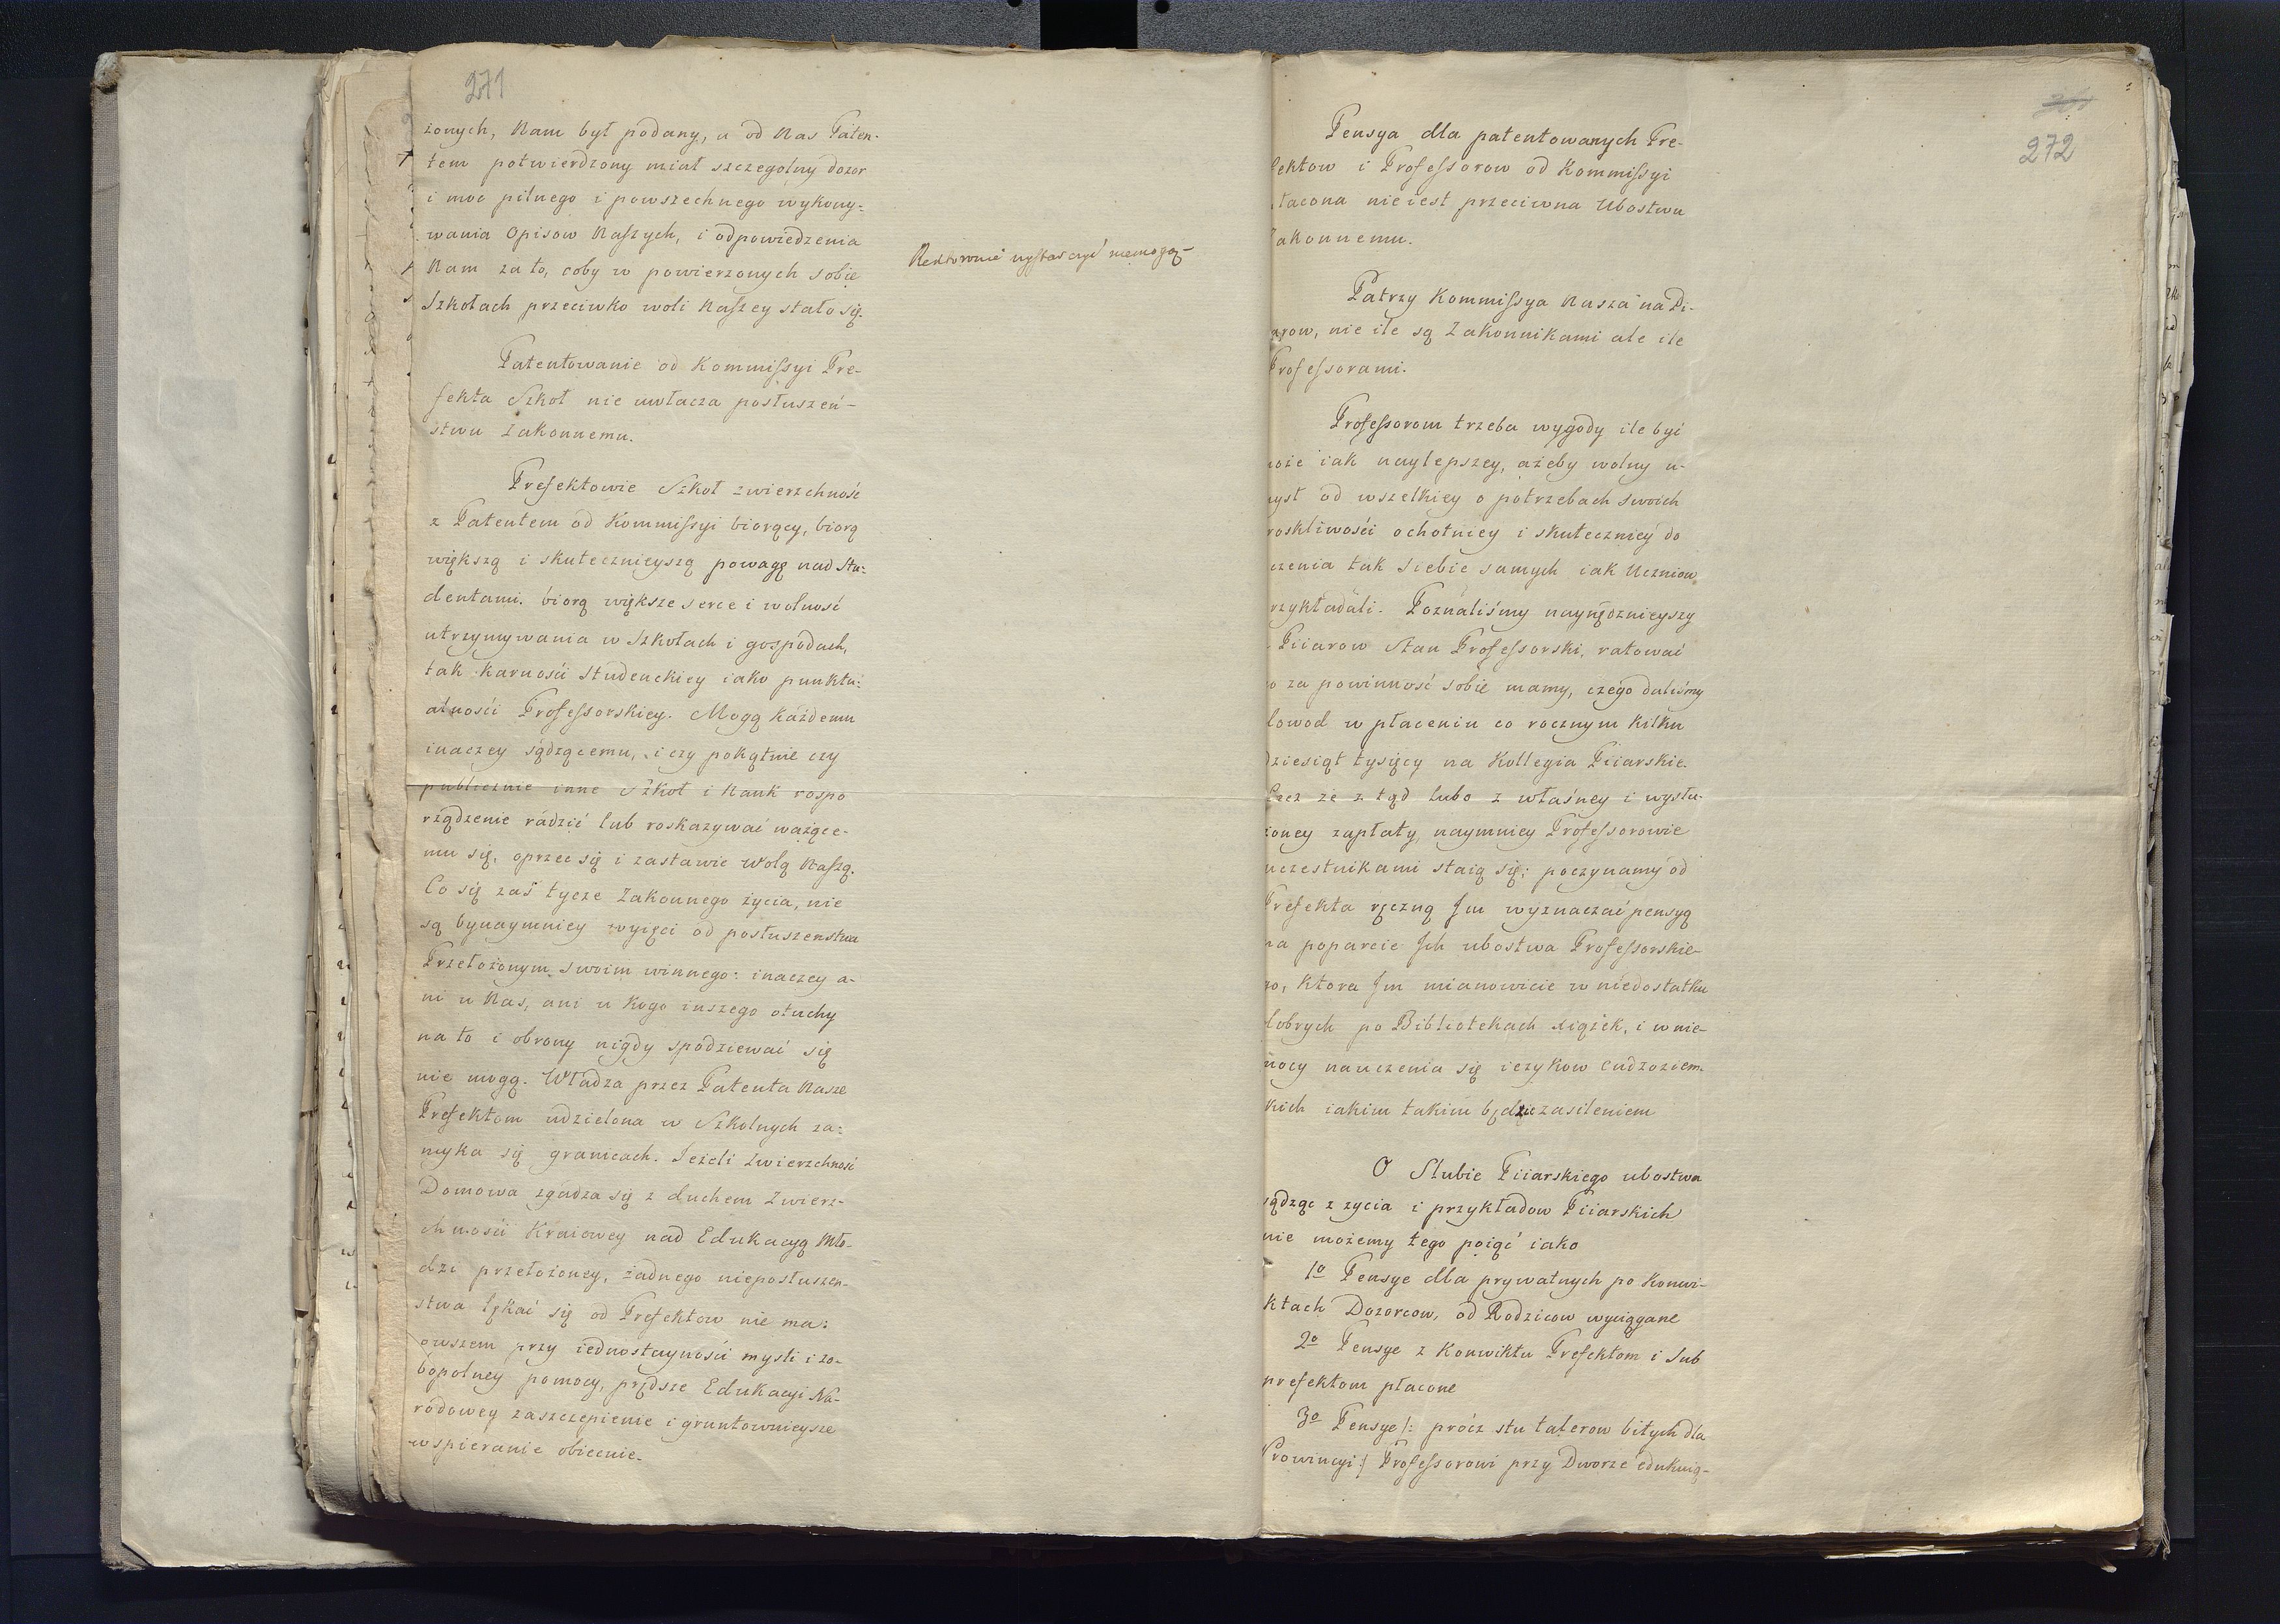 271
żonych, Nam był podany, a od Nas Paten-
tem potwierdzony miał szczegolny dozor
i moc pilnego i powszechnego wykony-
wania Opisow Naszych, i odpowiedzenia
Nam za to, coby w powierzonych sobie
Szkołach przeciwko woli Naszey stało się.
Rektorowie wystarczyć niemogą
Patentowanie od Kommissyi Pre-
fekta Szkoł nie uwłacza posłuszeń-
stwu Zakonnemu.
Prefektowie Szkoł zwierzchność
z Patentem od Kommissyi biorący, biorą
większą i skutecznieyszą powagę nad Stu-
dentami. biorą większe serce i wolność
utrzymywania w Szkołach i gospodach,
tak karności Studenckiey iako punktu-
alności Professorskiey. Mogą każdemu
inaczey sądzącemu, i czy pokątnie czy
publicznie inne Szkoł i Nauk rospo
rządzenie radzić lub roskazywać ważące-
mu się, oprzec się i zastawic Wolą Naszą.
Co się zaś tycze Zakonnego życia, nie
są bynaymniey wyięci od posłuszenstwa
Przełożonym swoim winnego: inaczey a-
ni u Nas, ani u Kogo inszego otuchy
na to i obrony nigdy spodziewać się
nie mogą. Władza przez Patenta Nasze
Prefektom udzielona w Szkolnych za-
myka się granicach. Jeżeli Zwierzchność
Domowa zgadza się z duchem Zwierz-
chności Kraiowey nad Edukacyą Mło-
dzi przełożoney, żadnego nieposłuszen-
stwa lękać się od Prefektow nie ma:
owszem przy iednostayności mysli i zo-
bopolney pomocy, prędsze Edukacyi Na-
rodowey zaszczepienie i gruntownieysze
wspieranie obiecuie.
272
Pensya dla patentowanych Pre-
fektow i Professorow od Kommissyi
łacona nie iest przeciwna Ubostwu
akonnemu.
Patrzy Kommissya Nasza na Pi-
arow, nie ile są Zakonnikami ale ile
Professorami.
Professorom trzeba wygody ile być
może iak naylepszey, ażeby wolny u-
mysł od wszelkiey o potrzebach swoich
roskliwości ochotniey i skuteczniey do
czenia tak siebie samych iak Uczniow
rzykładali. Poznaliśmy naynędznieyszy
Piiarow Stan Professorski, ratować
go za powinność sobie mamy, czego daliśmy
dowod w płaceniu co rocznym kilku
dziesiąt tysięcy na Kollegia Piiarskie.
Lecz że z tąd lubo z własney i wysłu-
żoney zapłaty, naymniey Professorowie
uczestnikami staią się; poczynamy od
Prefekta ręczną Jm wyznaczać pensyą
na poparcie Jch ubostwa Professorskie-
go, ktora Jm mianowicie w niedostatku
dobrych po Bibliotekach xiążek, i w nie-
mocy nauczenia się ięzykow cudzoziem-
kich iakim takim będzie zasileniem
O Slubie Piiarskiego ubostwa
sądząc z zycia i przykładow Piiarskich
nie możemy tego poiąć iako
1o Pensye dla prywatnych po Konwi-
ktach Dozorcow, od Rodzicow wyciągane
2o Pensye z Konwiktu Prefektom i Sub
prefektom płacone
3o Pensye /: prócz stu talerow bitych dla
Prowincyi :/ Professorowi przy Dworze edukuią-